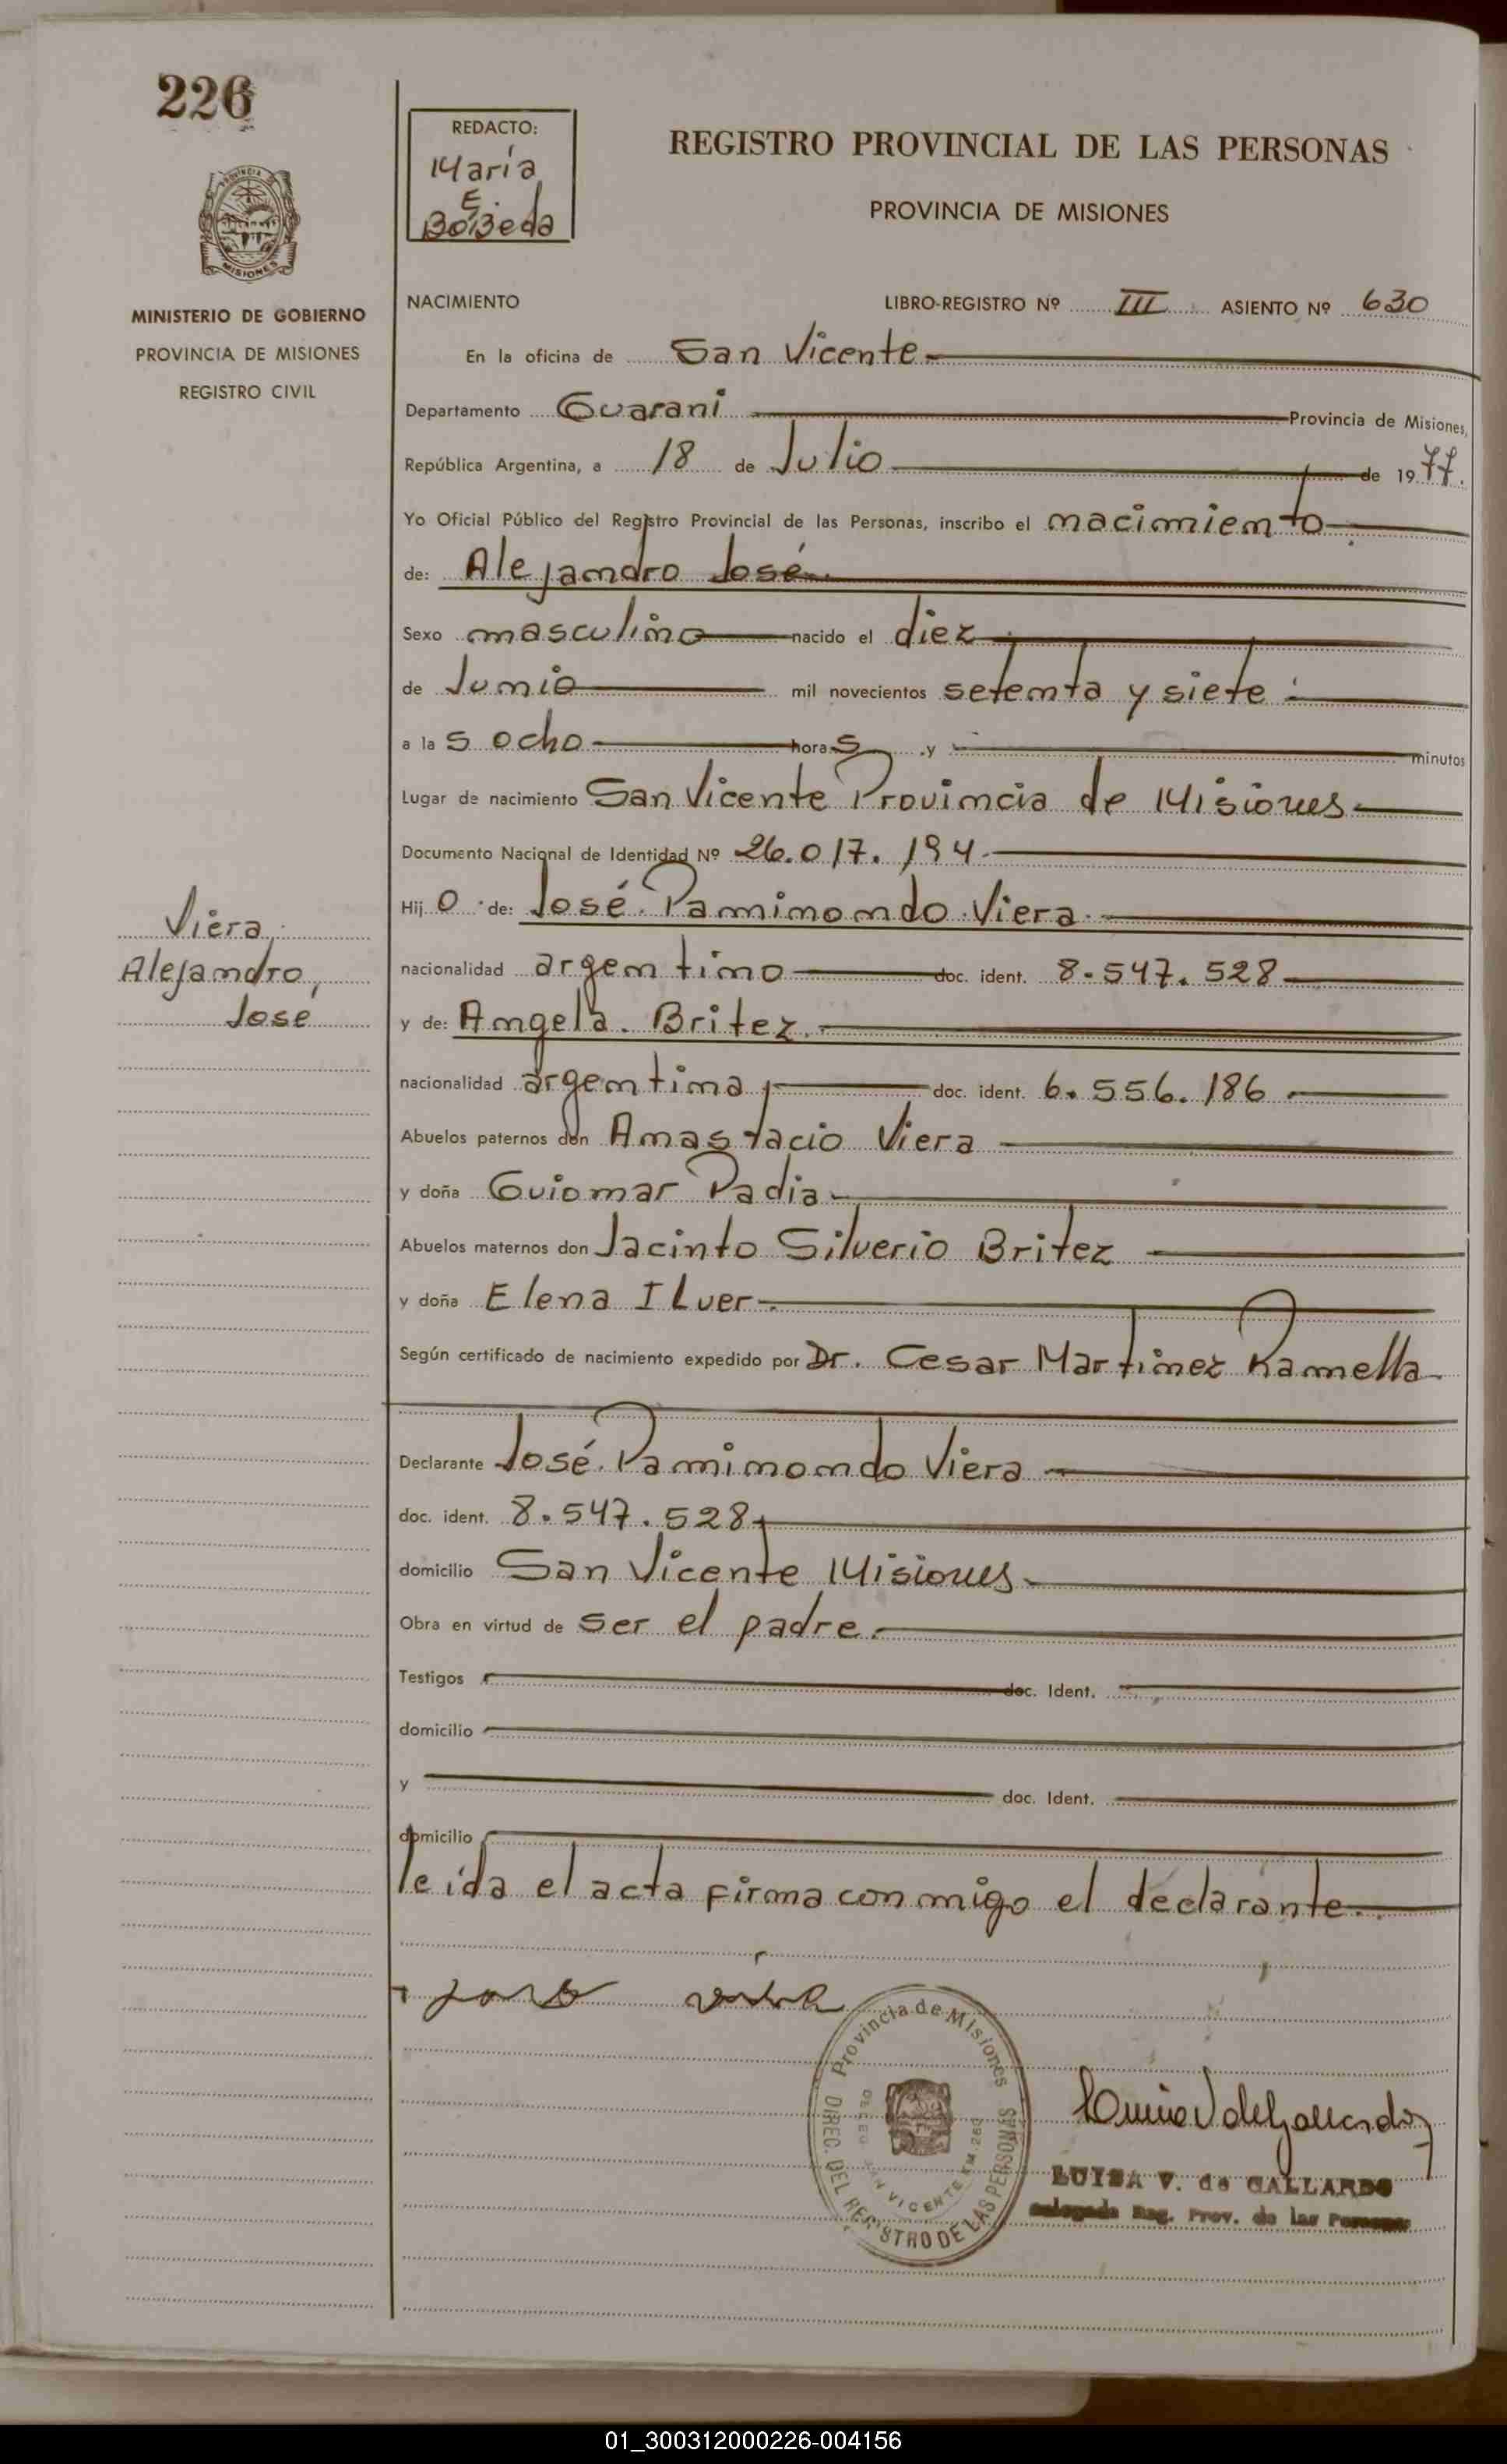 226
PROVINCIA DE
MISIONES
MINISTERIO DE GOBIERNO
PROVINCIA DE MISIONES
REGISTRO CIVIL
REDACTO:
María
E.
Bobeda
REGISTRO PROVINCIAL DE LAS PERSONAS
PROVINCIA DE MISIONES
NACIMIENTO LIBRO-REGISTRO Nº III ASIENTO Nº 630
En la oficina de San Vicente
Departamento Guarani Provincia de Misiones,
República Argentina, a 18 de Julio de 1977.
Yo Oficial Público del Registro Provincial de las Personas, inscribo el nacimiento
de: Alejandro José
Sexo masculino nacido el diez
de Junio mil novecientos setenta y siete
a las ocho horas y minutos
Lugar de nacimiento San Vicente Provincia de Misiones
Documento Nacional de Identidad Nº 26.017.194
Hijo de: José Ramimondo Viera
Viera
Alejandro,
José
nacionalidad argentino doc. ident. 8.547.528
y de: Angela Britez
nacionalidad argentina doc. ident. 6.556.186
Abuelos paternos don Anastacio Viera
y doña Guiomar Padia
Abuelos maternos don Jacinto Silverio Britez
y doña Elena ILver
Según certificado de nacimiento expedido por Dr. Cesar Martinez Ramella
Declarante José Ramimondo Viera
doc. ident. 8.547.528
domicilio San Vicente Misiones
Obra en virtud de ser el padre
Testigos doc. Ident.
domicilio
y doc. Ident.
domicilio
leida el acta firma conmigo el declarante
Provincia de Misiones
DIREC. DEL REGISTRO DE LAS PERSONAS
SAN VICENTE KM. 260
LUISA V. de GALLARDO
Delegada Reg. Prov. de las Personas
01_300312000226-004156